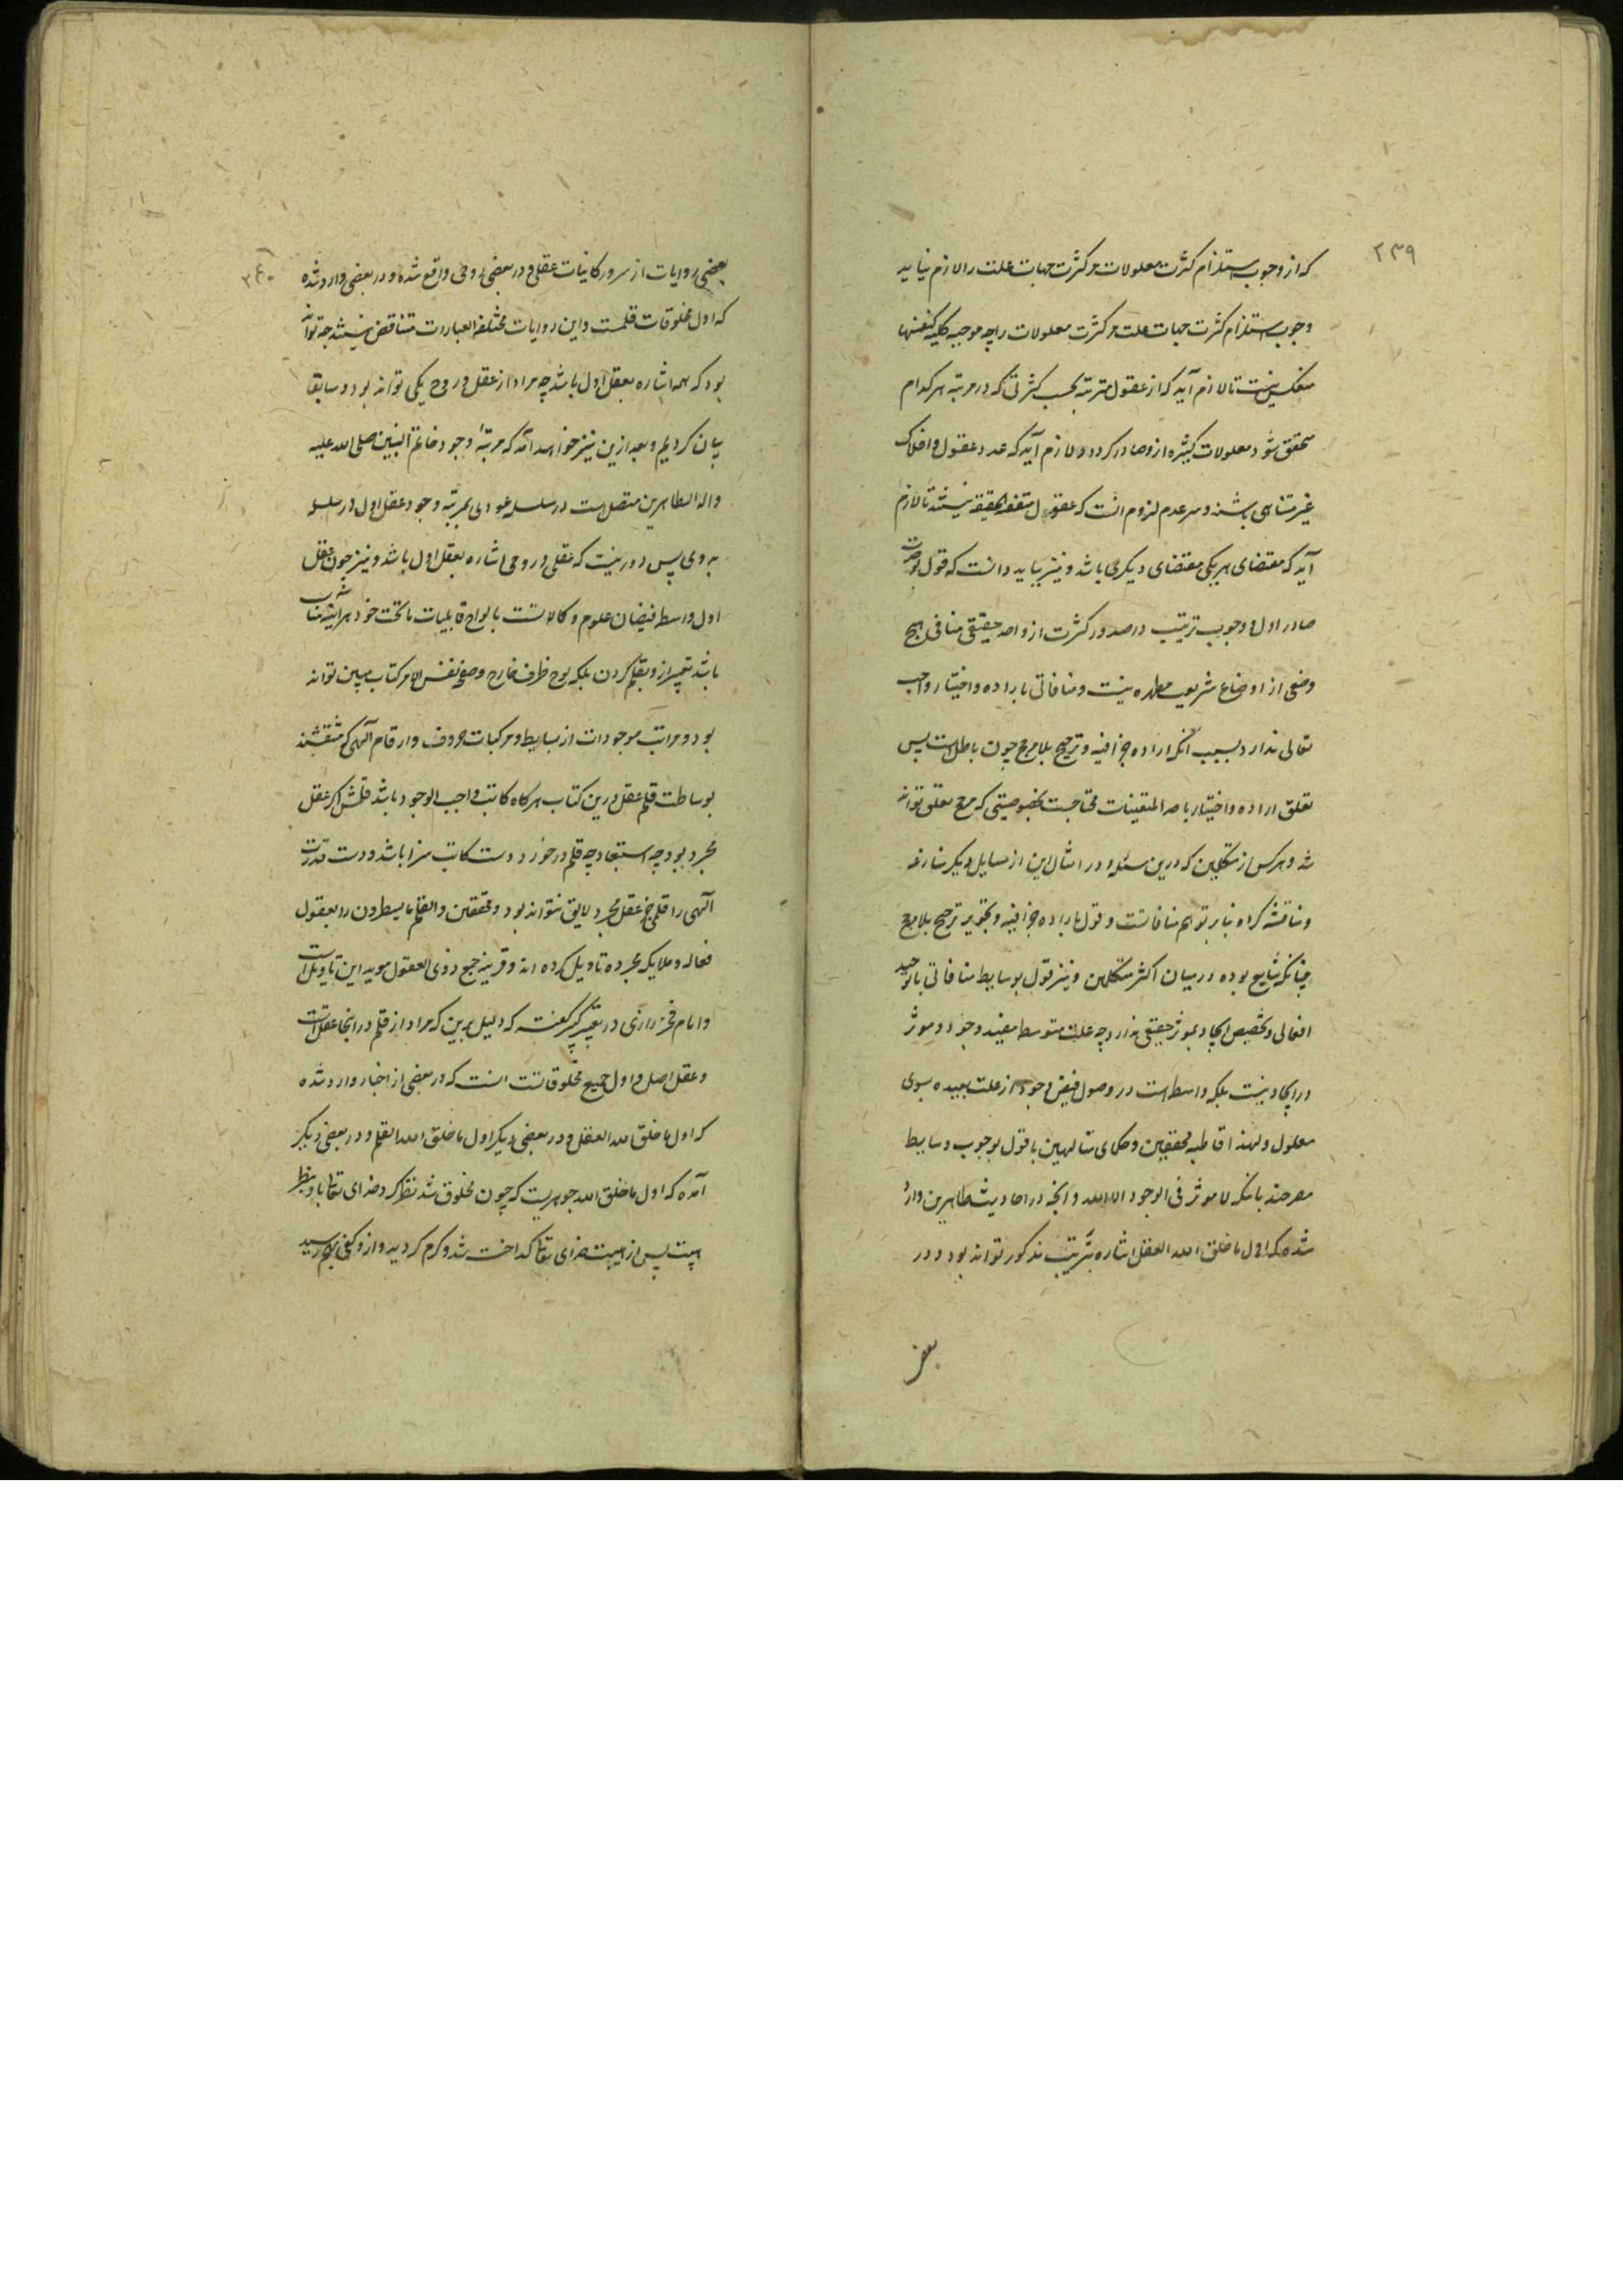 ۲۳۹
که از وجوب استلزام کثرت معلولات مر کثرت جهات علت را لازم نیاید
وجوب استلزام کثرت جهات علت مر کثرت معلولات را چه موجبه کلیه کنفسها
منعکس نیست تا لازم آید که از عقول مترتبه بحسب کثرتی که در مرتبه هر کدام
متحقق شود معلولات کثیره از و صادر کردد و لازم آید که عدد عقول و افلاک
غیر متناهی باشند و سر عدم لزوم انست که عقول متفقة الحقیقه نیستند تا لازم
آید که مقتضای هر یکی مقتضای دیکری باشد و نیز بباید دانست که قول بوحدت
صادر اول و وجوب ترتیب در صدور کثرت از واحد حقیقی منافی هیچ
وضعی از اوضاع شریعت مطهره نیست و منافاتی با اراده و اختیار واجب
تعالی ندارد بسبب آنکه اراده جزافیه و ترجیح بلا مرجح چون باطل است پس
تعلق اراده و اختیار باحد المتعینات محتاجست بخصوصیتی که مرجح تعلق تواند
شد و هر کس از متکلمین که درین مسئله و در امثال این از مسایل دیکر منازعه
و مناقشه کرده بنا بر توهم منافاتست و قول باراده جزافیه و تجویز ترجیح بلا مرجح
چنانکه شایع بوده در میان اکثر متکلمین و نیز قول بوسایط منافاتی با توحید
افعالی و تخصیص ایجاد بموثر حقیقی ندارد چه علت متوسط مفید وجود و موثر
در ایجاد نیست بلکه واسطه است در وصول فیض وجود از علت بعیده بسوی
معلول و لهذا قاطبه محققین و حکمای متالهین با قول بوجوب وسایط
مصرحند بانکه لا موثر فی الوجود الا الله و آنچه در احادیث طاهرین وارد
شده که اول ما خلق الله العقل اشاره بترتیب مذکور تواند بود و در
بعض
۲۴۰
بعضی روایات از سرور کاینات عقلی و در بعضی روحی واقع شده و در بعضی وارد شده
که اول مخلوقات قلمست و این روایات مختلفة العبارات متناقض نیستند چه تواند
بود که همه اشاره بعقل اول باشد چه مراد از عقل و روح یکی تواند بود و سابقا
بیان کردیم و بعد ازین نیز خواهد آمد که مرتبۀ وجود خاتم النبیین صلی الله علیه
و اله الطاهرین متصل است در سلسله عودی بمرتبه وجود عقل اول در سلسله
بدوی پس دور نیست که عقلی و روحی اشاره بعقل اول باشد و نیز چون عقل
اول واسطه فیضان علوم و کمالاتست بالواح قابلیات ماتحت خود هر آینه مناسب
باشد تعبیر از و بقلم کردن بلکه لوح ظرف خارج و صفحه نفس الامر کتاب مبین تواند
بود و مراتب موجودات از بسایط و مرکبات حروف و ارقام آلهی که منتقشند
بوساطت قلم عقل درین کتاب هر کاه کاتب واجب الوجود باشد قلمش اکر عقل
مجرد بود چه استبعاد چه قلم در خور دست کاتب سزا باشد و دست قدرت
آلهی را قلمی جز عقل مجرد لایق نتواند بود و محققین و القلم و ما یسطرون را بعقول
فعاله و ملایکه مجرده تاویل کرده اند و قرینه جمع ذوی العقول موید این تاویل است
و امام فخر رازی در تفسیر کبیر کفته که دلیل برین که مراد از قلم در اینجا عقل است
و عقل اصل و اول جمیع مخلوقاتست انست که در بعضی از اخبار وارد شده
که اول ما خلق الله العقل و در بعضی دیکر اول ما خلق الله القلم و در بعضی دیکر
آمده که اول ما خلق الله جوهریست که چون مخلوق شد نظر کرد خدای تعالی باو بنظر
هیبت پس از هیبت خدای تعالی کداخته شد و کرم کردید و از و کفی بهم رسید